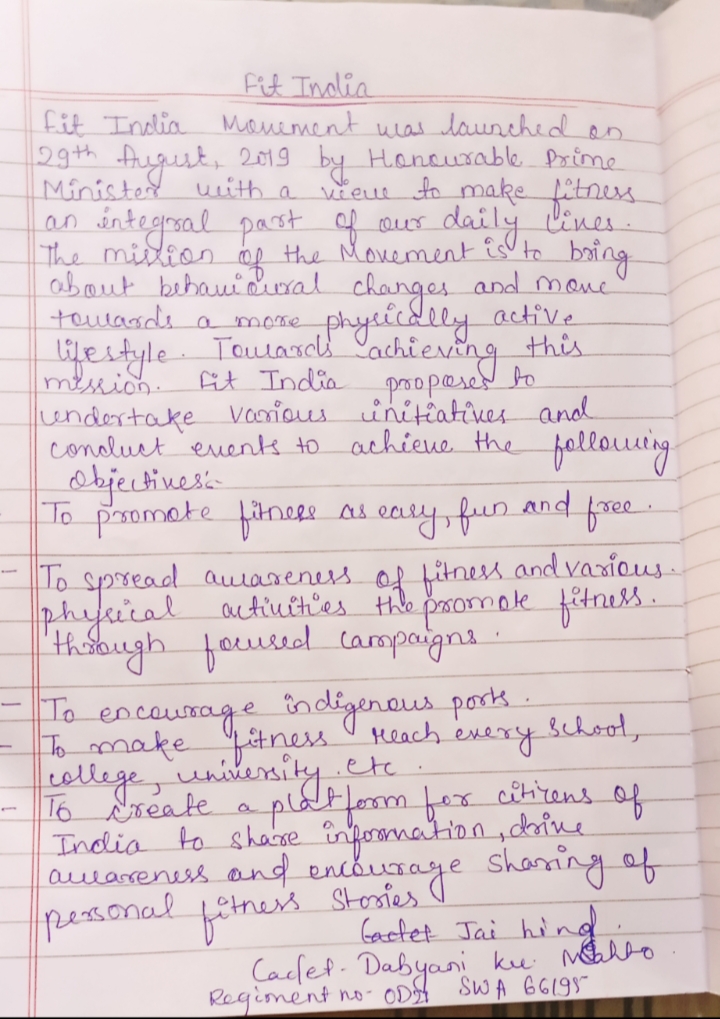 Fit India
Fit India Movement was launched on
29th August, 2019 by Honourable Prime
Minister with a view to make fitness
an integral part of our daily lives.
The mission of the Movement is to bring
about behavioural changes and move
towards a more physically active
lifestyle. Towards achieving this
mission. Fit India proposes to
undertake various initiatives and
conduct events to achieve the following
Objectives:-
To promote fitness as easy, fun and free.
- To spread awareness of fitness and various.
physical activities the promote fitness.
through focused campaigns.
- To encourage indigenous ports.
- To make fitness reach every school,
college, university. etc.
- To create a platform for citizens of
India to share information, drive
awareness and encourage sharing of
personal fitness stories
Jai hind.
Cadet- Dabyani ku. Mahto.
Regiment no- SWA 66195